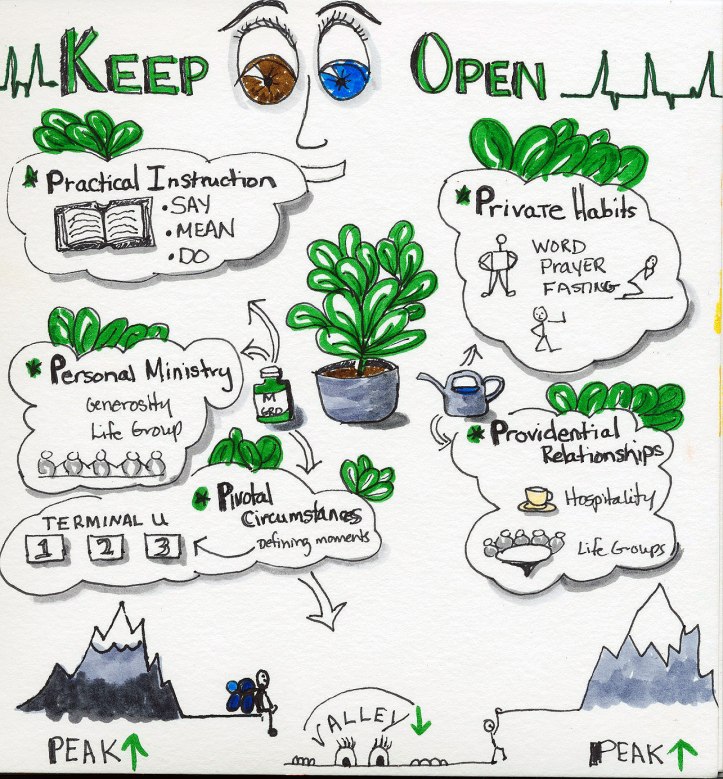 KEEP OPEN
Practical Instruction
• SAY
• MEAN
• DO
Private Habits
WORD
PRAYER
FASTING
Personal Ministry
Generosity
Life Group
M
GRO
Providential
Relationships
Hospitality
Life Groups
Pivotal
Circumstances
Defining moments
TERMINAL U
1 2 3
PEAK
VALLEY
PEAK